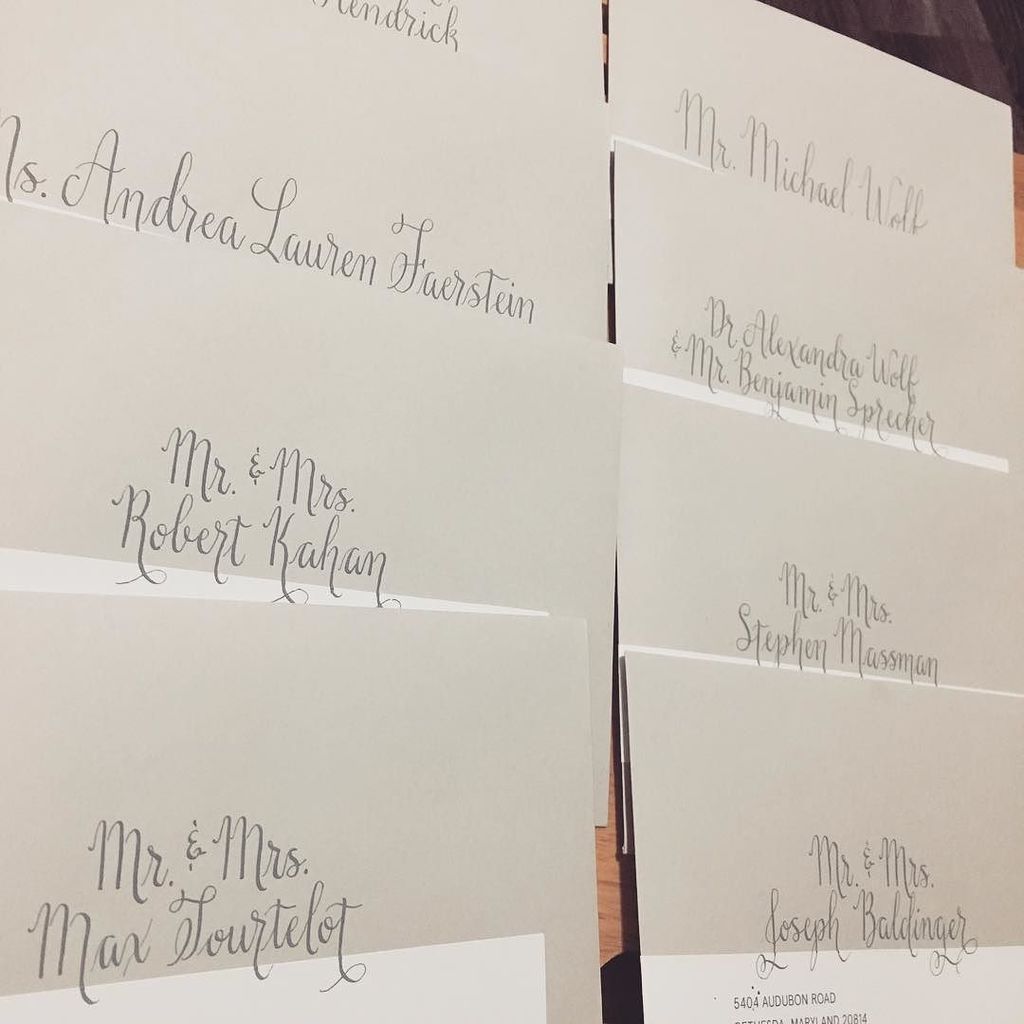 Hendrick
Ms. Andrea Lauren Faerstein
Mr. & Mrs.
Robert Kahan
Mr. & Mrs.
Max Tourtelot
Mr. Michael Wolf
Dr. Alexandra Wolf
& Mr. Benjamin Sprecher
Mr. & Mrs.
Stephen Massman
Mr. & Mrs.
Joseph Baldinger
5404 AUDUBON ROAD
BETHESDA, MARYLAND 20814